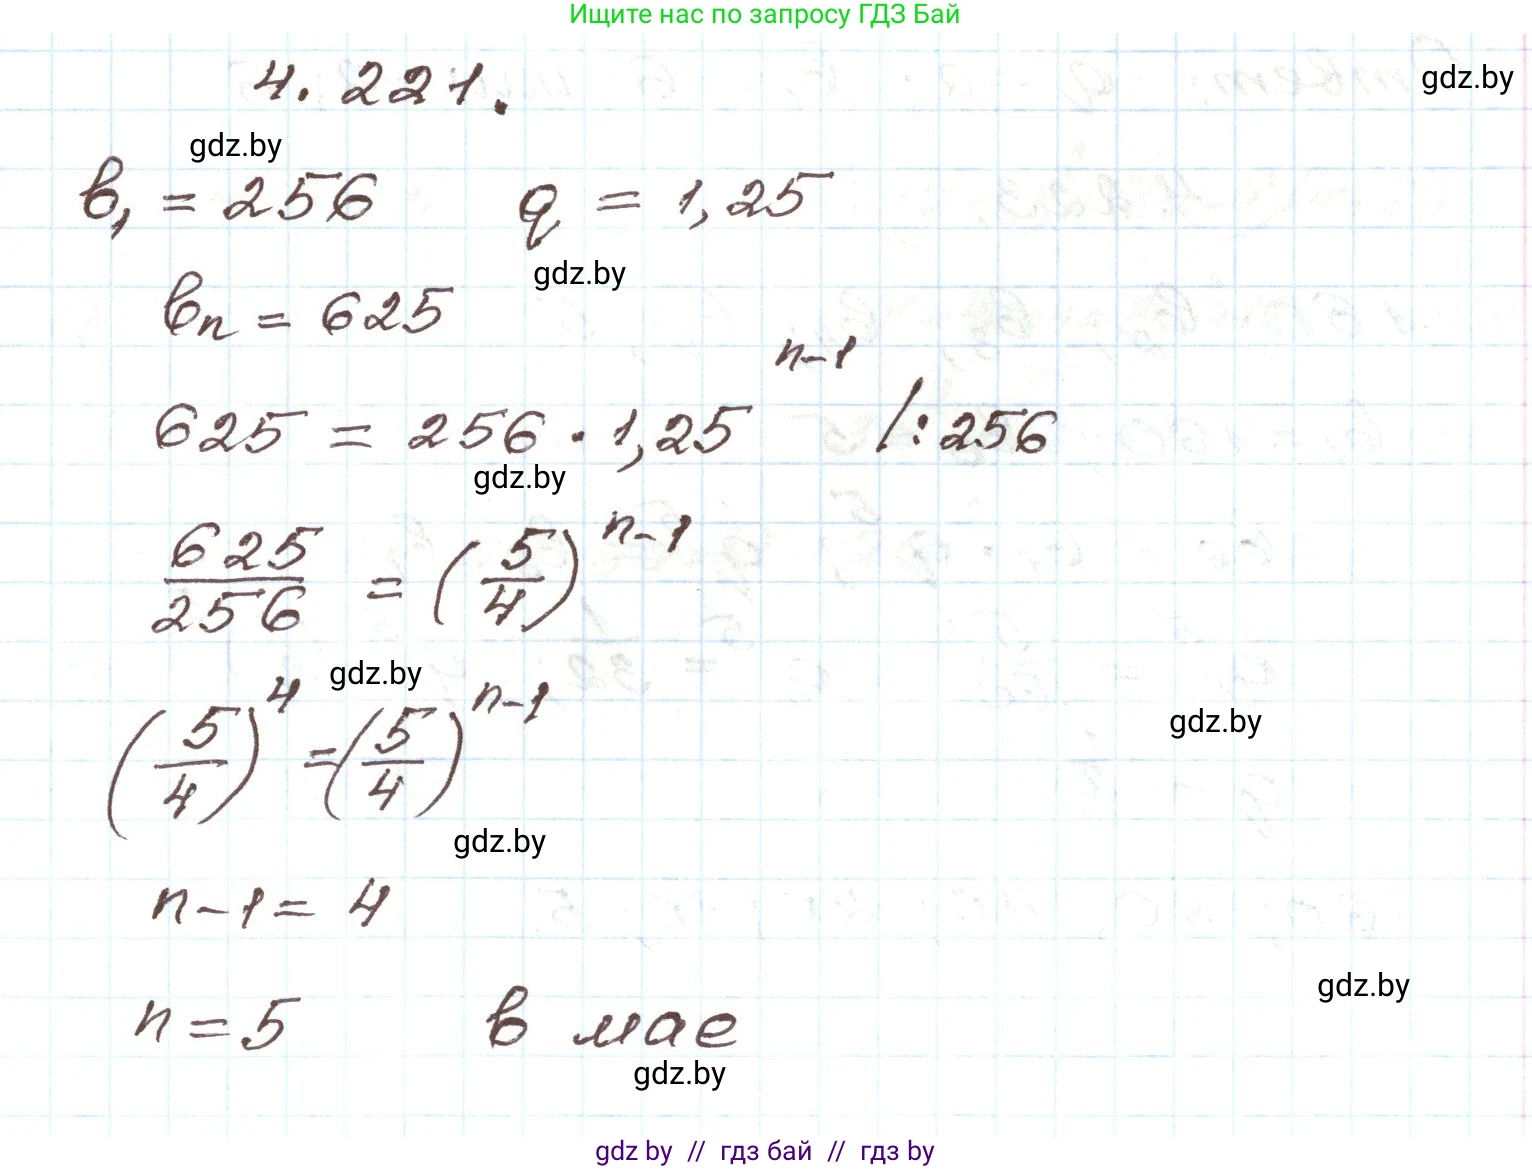 Ищите нас по запросу ГДЗ Бай
4.221.
gdz.by
gdz.by
b₁ = 256 q = 1,25
gdz.by
bₙ = 625
625 = 256 · 1,25ⁿ⁻¹ /: 256
gdz.by
625/256 = (5/4)ⁿ⁻¹
gdz.by
(5/4)⁴ = (5/4)ⁿ⁻¹
gdz.by
gdz.by
n-1 = 4
gdz.by
n = 5 в мае
gdz.by
gdz by // гдз бай // гдз by